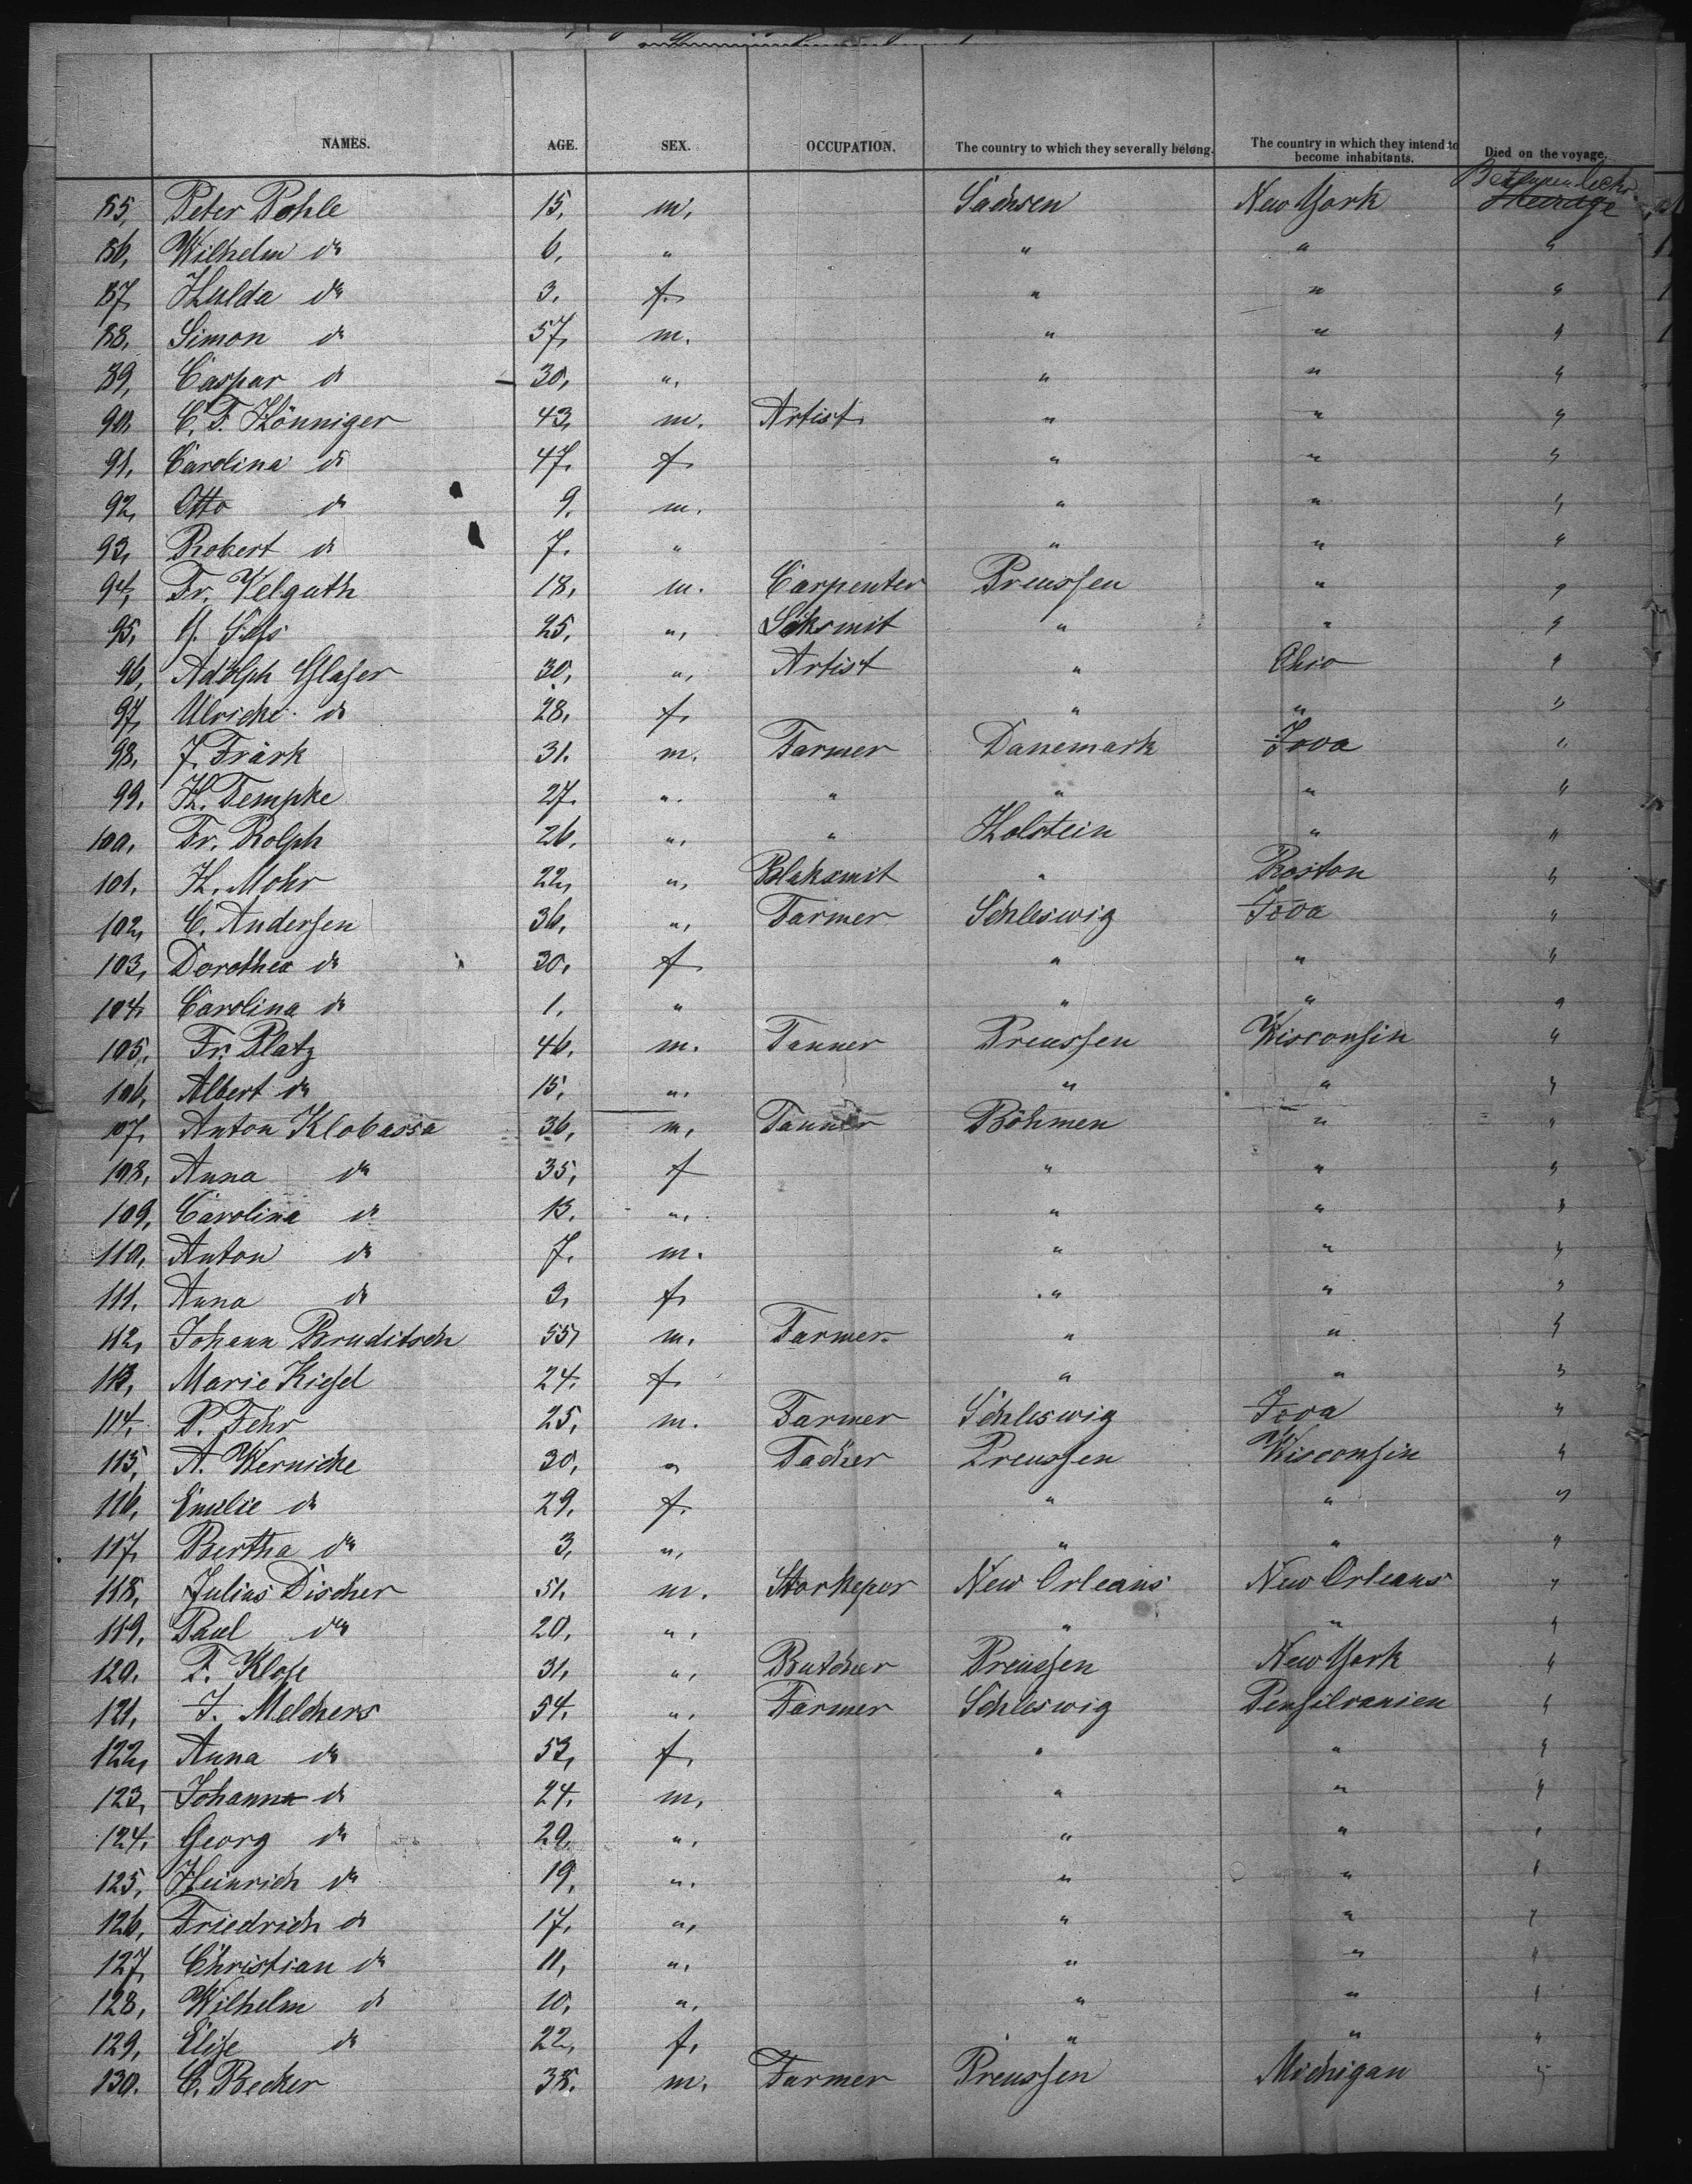 NAMES. AGE. SEX. OCCUPATION. The country to which they severally belong. The country in which they intend to become inhabitants. Died on the voyage.
85, Peter Pohle 15, m, Sachsen New York Between decks Steerage
86, Wilhelm do 6, " " " "
87, Hulda do 3. f. " " "
88, Simon do 57, m. " " "
89, Caspar do 30, ", " " "
90, C. F. Hönniger 43, m. Artist " " "
91, Carolina do 47. f. " " "
92, Otto do 9. m. " " "
93, Robert do 7. " " " "
94, Fr. Velguth 18, m. Carpenter Preussen " "
95, 25, ", " " "
96, Adolph Glaser 30, ", Artist " Ohio "
97, Ulricke do 28, f, " " "
98, J. Frärk 31. m. Farmer Danemark Iova "
99, H. Tempke 27. ". " " " "
100, Fr. Rolph 26, ", " Holstein " "
101. H. Mohr 22, ", Blaksmit " Boston "
102, C. Andersen 36, ", Farmer Schleswig Iova "
103, Dorothea do 30, f " " "
104, Carolina do 1. " " " "
105, Fr. Platz 46, m. Tanner Preussen Wisconsin "
106, Albert do 15, ". " " "
107, Anton Klobassa 36, m, Tanner Böhmen " "
108, Anna do 35, f " " "
109, Carolina do 13. ", " " "
110, Anton do 7. m. " " "
111. Anna do 3, f, " " "
112, Johann Bruditsch 55, m. Farmer " " "
113, Marie Kiesel 24. f. " " "
114. P. Fehr 25, m. Farmer Schleswig Iova "
115, A. Wernicke 30, " Preussen Wisconsin "
116, Emilie do 29. f. " " "
117, Bertha do 3, ", " " "
118, Julius Discher 51. m. Storkeper New Orleans New Orleans "
119, Paul do 20, ", " " "
120. F. Klose 31, ", Butcher Preussen New York "
121, J. Melchers 54. ", Farmer Schleswig Pensilvanien "
122, Anna do 53, f, " " "
123, Johanna do 24. m, " " "
124. Georg do 20, ", " " "
125, Heinrich do 19, ". " " "
126, Friedrich do 17, ", " " "
127, Christian do 11, ", " " "
128, Wilhelm do 10, ", " " "
129, Elise do 22, f, " " "
130. C. Becker 38. m. Farmer Preussen Michigan "